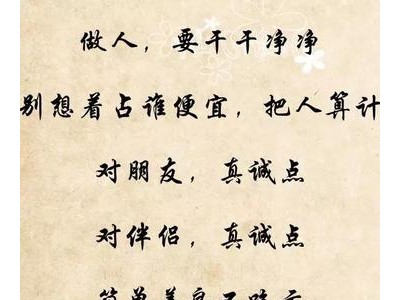 做人，要干干净净
别想着占谁便宜，把人算计
对朋友，真诚点
对伴侣，真诚点